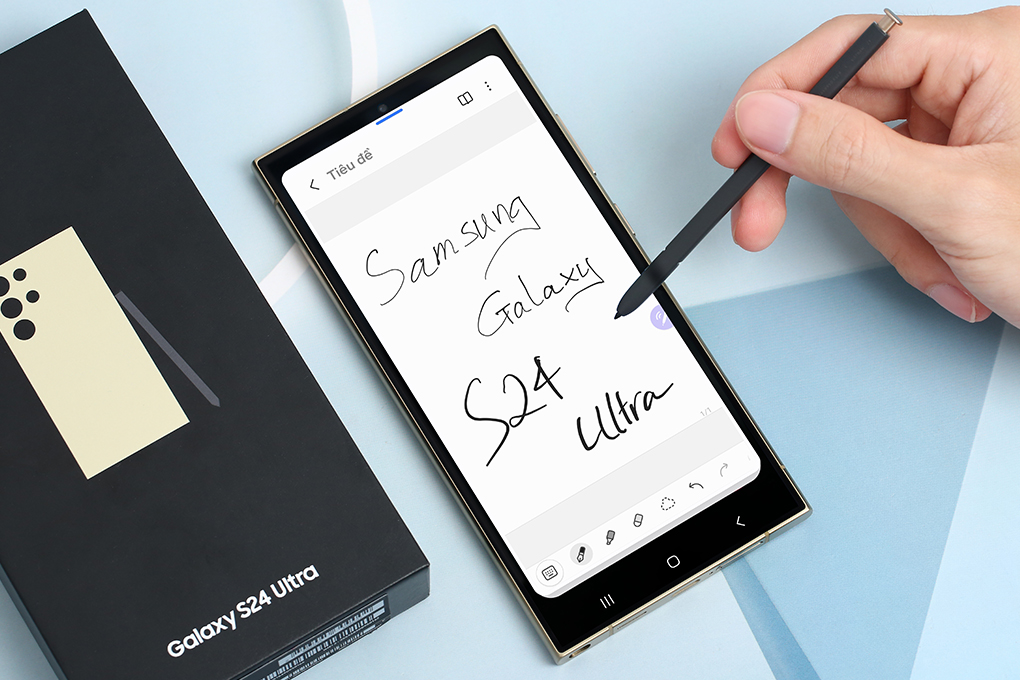 Tiêu đề
Samsung
Galaxy
S24 Ultra
1/1
Galaxy S24 Ultra